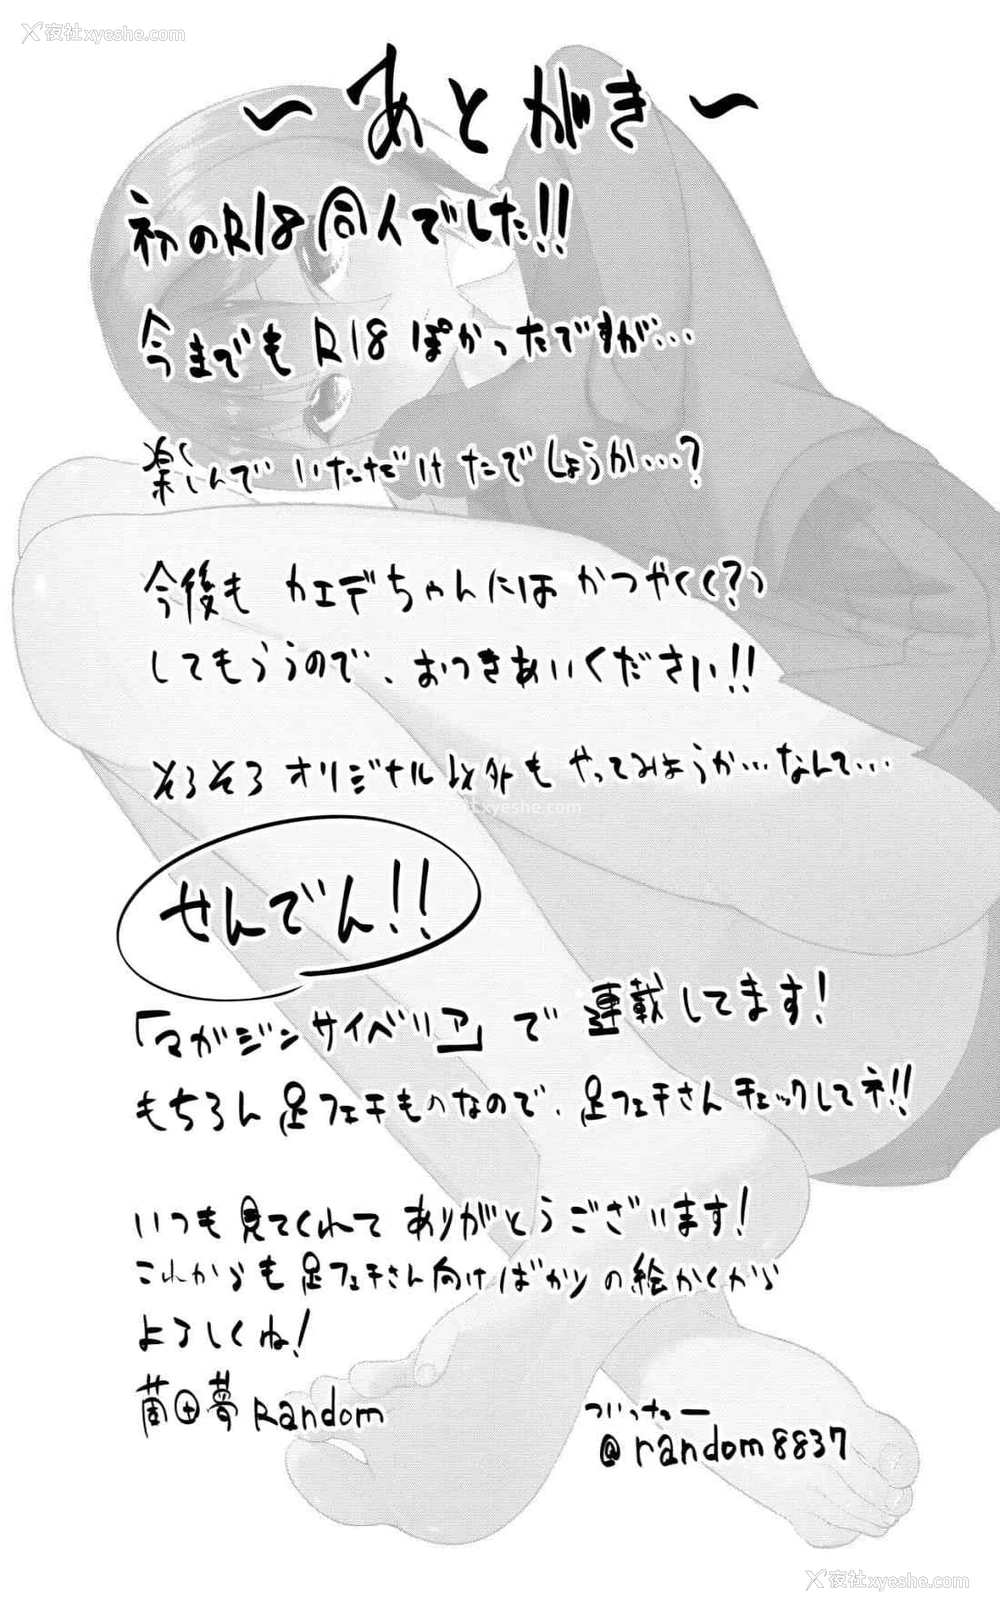 夜社xyeshe.com
～あとがき～
初のR18同人でした!!
今までもR18ぽかったですが…
楽しんでいただけたでしょうか…?
今後もカエデちゃんにはかつやく(?)
してもらうので、おつきあいください!!
そろそろオリジナル以外もやってみようか…なんて…
xyeshe.com
せんでん!!
「マガジンサイベリア」で連載してます!
もちろん足フェチものなので、足フェチさんチェックしてネ!!
いつも見てくれてありがとうございます!
これからも足フェチさん向けばかりの絵かくから
よろしくね!
田夢Random
ついったー
@random8837
夜社xyeshe.com